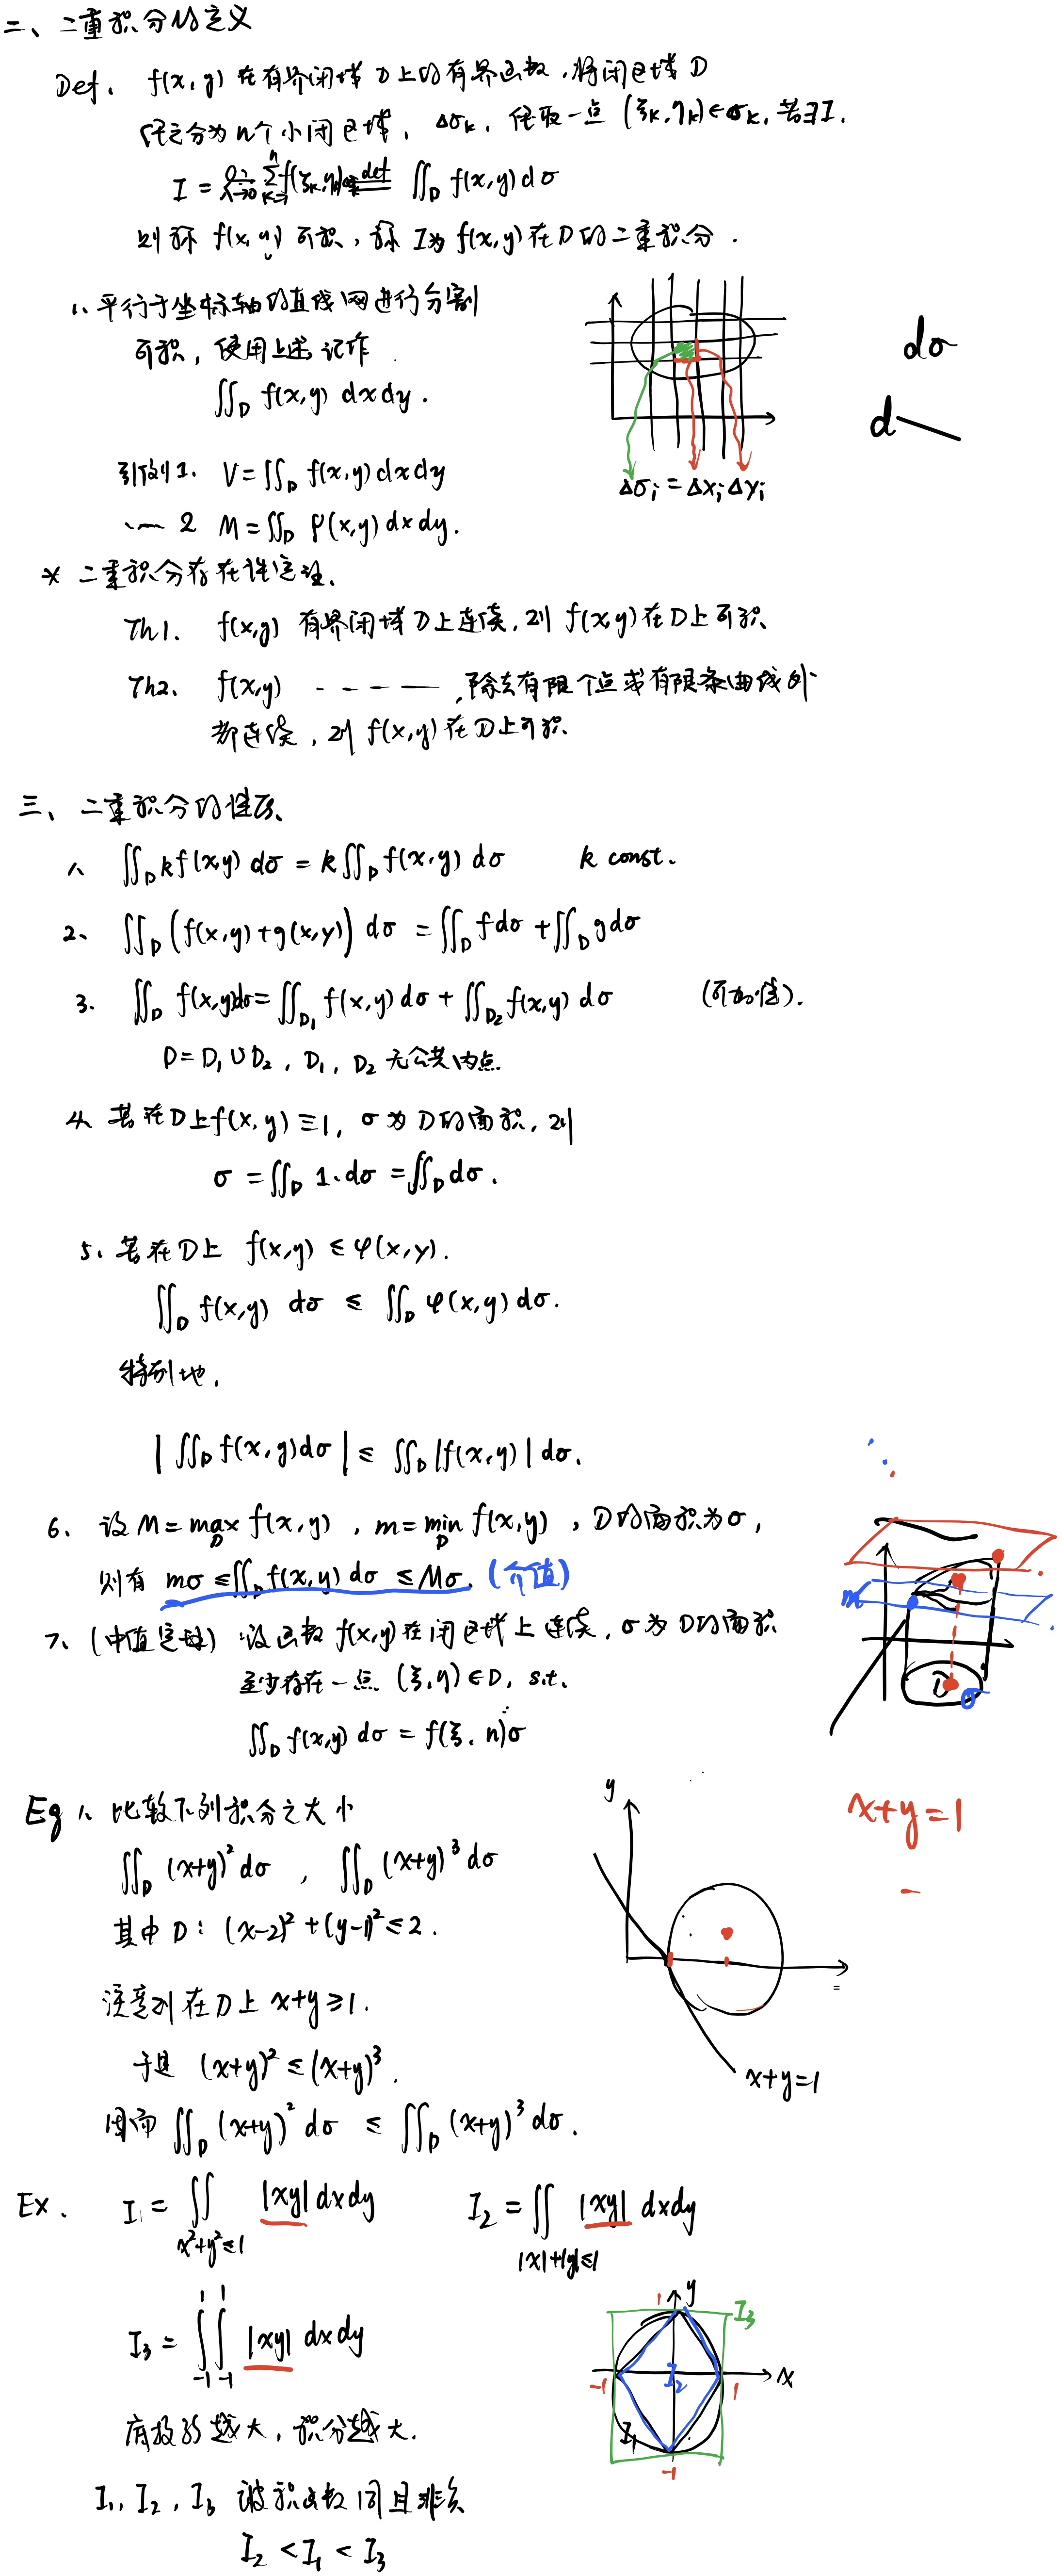 二、二重积分的定义
Def. f(x,y) 在有界闭域 D 上的有界函数，将闭区域 D
任意分为 n个小闭区域，Δσₖ，任取一点 (ξₖ,ηₖ)∈σₖ，若∃I.
I = lim λ→0 Σ k=1 n f(ξₖ,ηₖ) def ∬_D f(x,y) dσ
则称 f(x,y) 可积，称 I为 f(x,y) 在 D 的二重积分．
1、平行于坐标轴的直线网进行分割
可积，使用上述记作
∬_D f(x,y) dxdy．
dσ
d
Δσᵢ = Δxᵢ Δyᵢ
引例1. V=∬_D f(x,y) dxdy
2 M=∬_D ρ(x,y) dxdy.
* 二重积分存在性定理、
Th1. f(x,y) 有界闭域 D上连续，则 f(x,y)在D上可积、
Th2、 f(x,y) -----，除去有限个点或有限条曲线外
都连续，则 f(x,y) 在 D上可积、
三、二重积分的性质、
1、 ∬_D kf(x,y) dσ = k∬_D f(x,y) dσ k const.
2、 ∬_D (f(x,y)+g(x,y)) dσ = ∬_D fdσ + ∬_D gdσ
3. ∬_D f(x,y)dσ = ∬_D₁ f(x,y) dσ + ∬_D₂ f(x,y) dσ (可加性).
D= D₁∪D₂，D₁，D₂ 无公共内点
4、若在D上f(x,y)≡1，σ 为 D的面积，则
σ =∬_D 1·dσ =∬_D dσ.
5、若在D上 f(x,y) ≤ φ(x,y).
∬_D f(x,y) dσ ≤ ∬_D φ(x,y) dσ.
特别地，
|∬_D f(x,y)dσ| ≤ ∬_D |f(x,y)| dσ.
6、设 M= max_D f(x,y) ，m= min_D f(x,y) ，D的面积为σ，
则有 mσ ≤∬_D f(x,y) dσ ≤Mσ. (介值)
m
D
σ
7、(中值定理) 设函数 f(x,y)在闭区域上连续，σ为 D的面积
至少存在一点 (ξ,η)∈D，s.t.
∬_D f(x,y) dσ = f(ξ,η)σ
Eg 1、比较下列积分之大小
∬_D (x+y)² dσ ，∬_D (x+y)³ dσ
其中 D：(x-2)²+(y-1)²≤2．
y
x+y=1
注意到在D上 x+y≥1．
于是 (x+y)² ≤ (x+y)³．
x+y=1
因而 ∬_D (x+y)² dσ ≤ ∬_D (x+y)³ dσ.
Ex. I₁ = ∬ x²+y²≤1 |xy| dxdy I₂ = ∬ |x|+|y|≤1 |xy| dxdy
I₃ = ∫₋₁¹∫₋₁¹ |xy| dxdy
1 y I₃
-1 I₂ 1 x
I₁
-1
越大，积分越大.
I₁，I₂，I₃ 被积函数同且非负
I₂ < I₁ < I₃